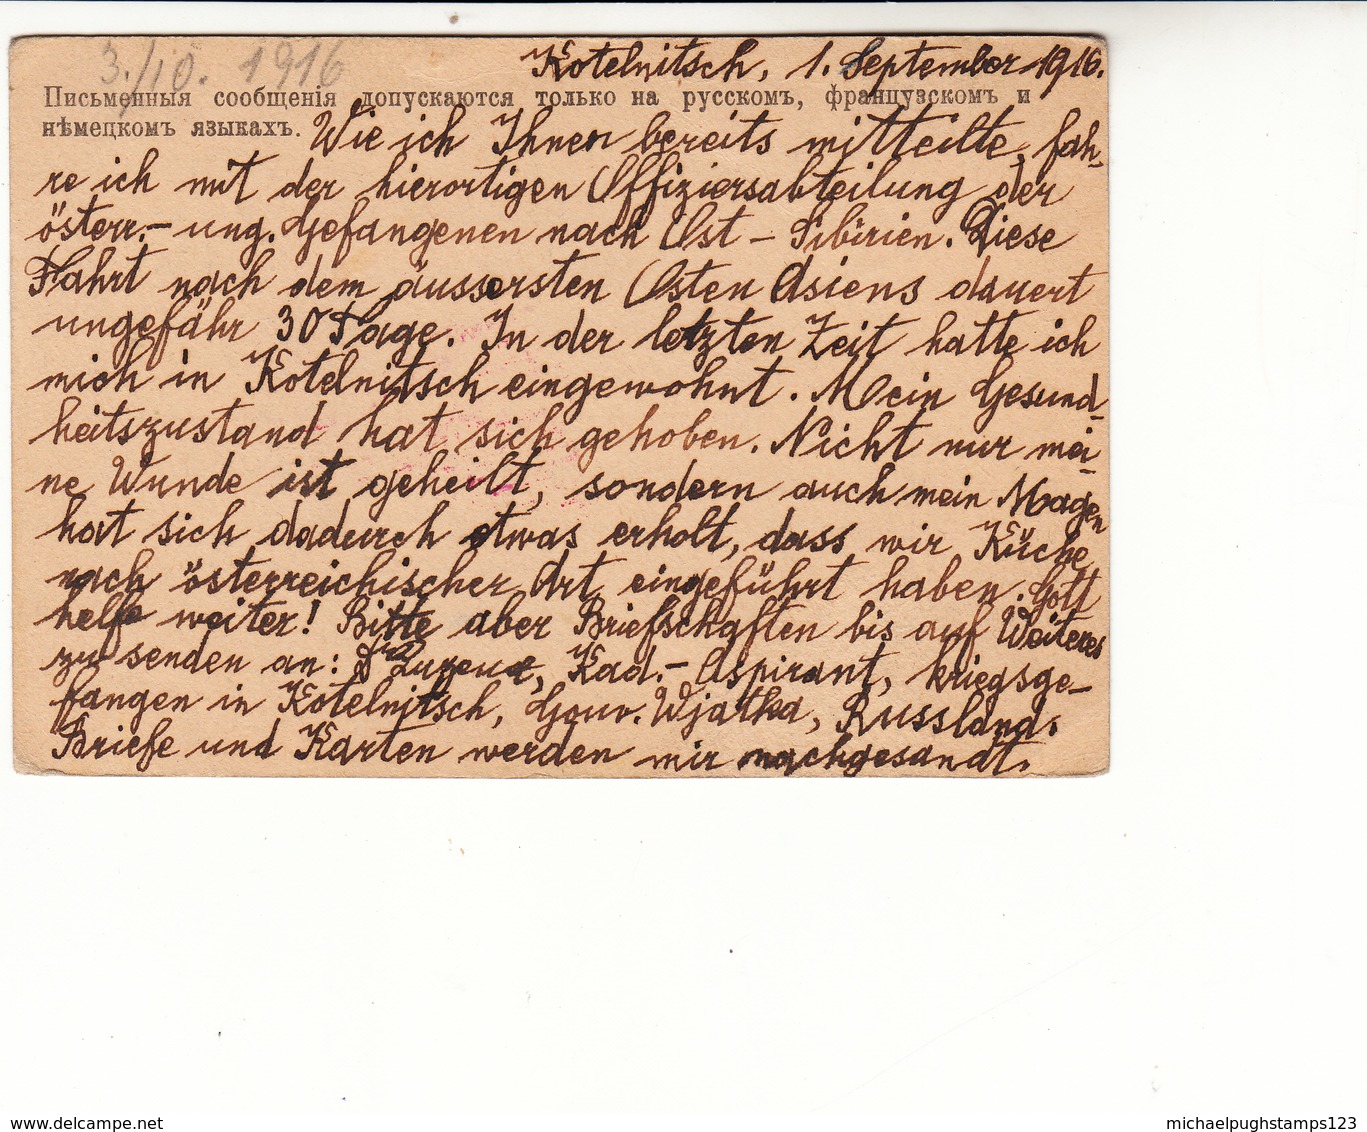 3./10. 1916
Kotelnitsch, 1. September 1916.
Письменныя сообщенія допускаются только на русскомъ, французскомъ и
нѣмецкомъ языкахъ.
Wie ich Ihnen bereits mitteilte, fah-
re ich mit der hierortigen Offiziersabteilung der
österr.-ung. Gefangenen nach Ost-Sibirien. Diese
Fahrt nach dem äussersten Osten Asiens dauert
ungefähr 30 Tage. In der letzten Zeit hatte ich
mich in Kotelnitsch eingewohnt. Mein Gesund-
heitszustand hat sich gehoben. Nicht nur mei-
ne Wunde ist geheilt, sondern auch mein Magen
hat sich dadurch etwas erholt, dass wir Küche
nach österreichischer Art eingeführt haben. Gott
helfe weiter! Bitte aber Briefschaften bis auf Weiteres
zu senden an: Kad.-Aspirant, kriegsge-
fangen in Kotelnitsch, Gouv. Wjatka, Russland.
Briefe und Karten werden mir nachgesandt.
www.delcampe.net
michaelpughstamps123